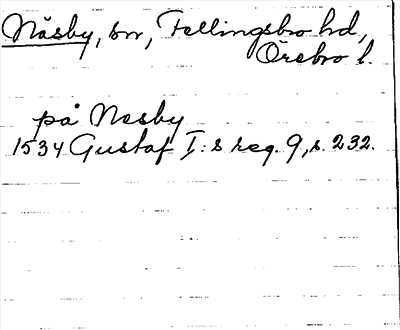 Näsby, sn, Fellingsbro hd,
Örebro l.
på Nesby
1534 Gustaf I:s reg. 9, s. 232.